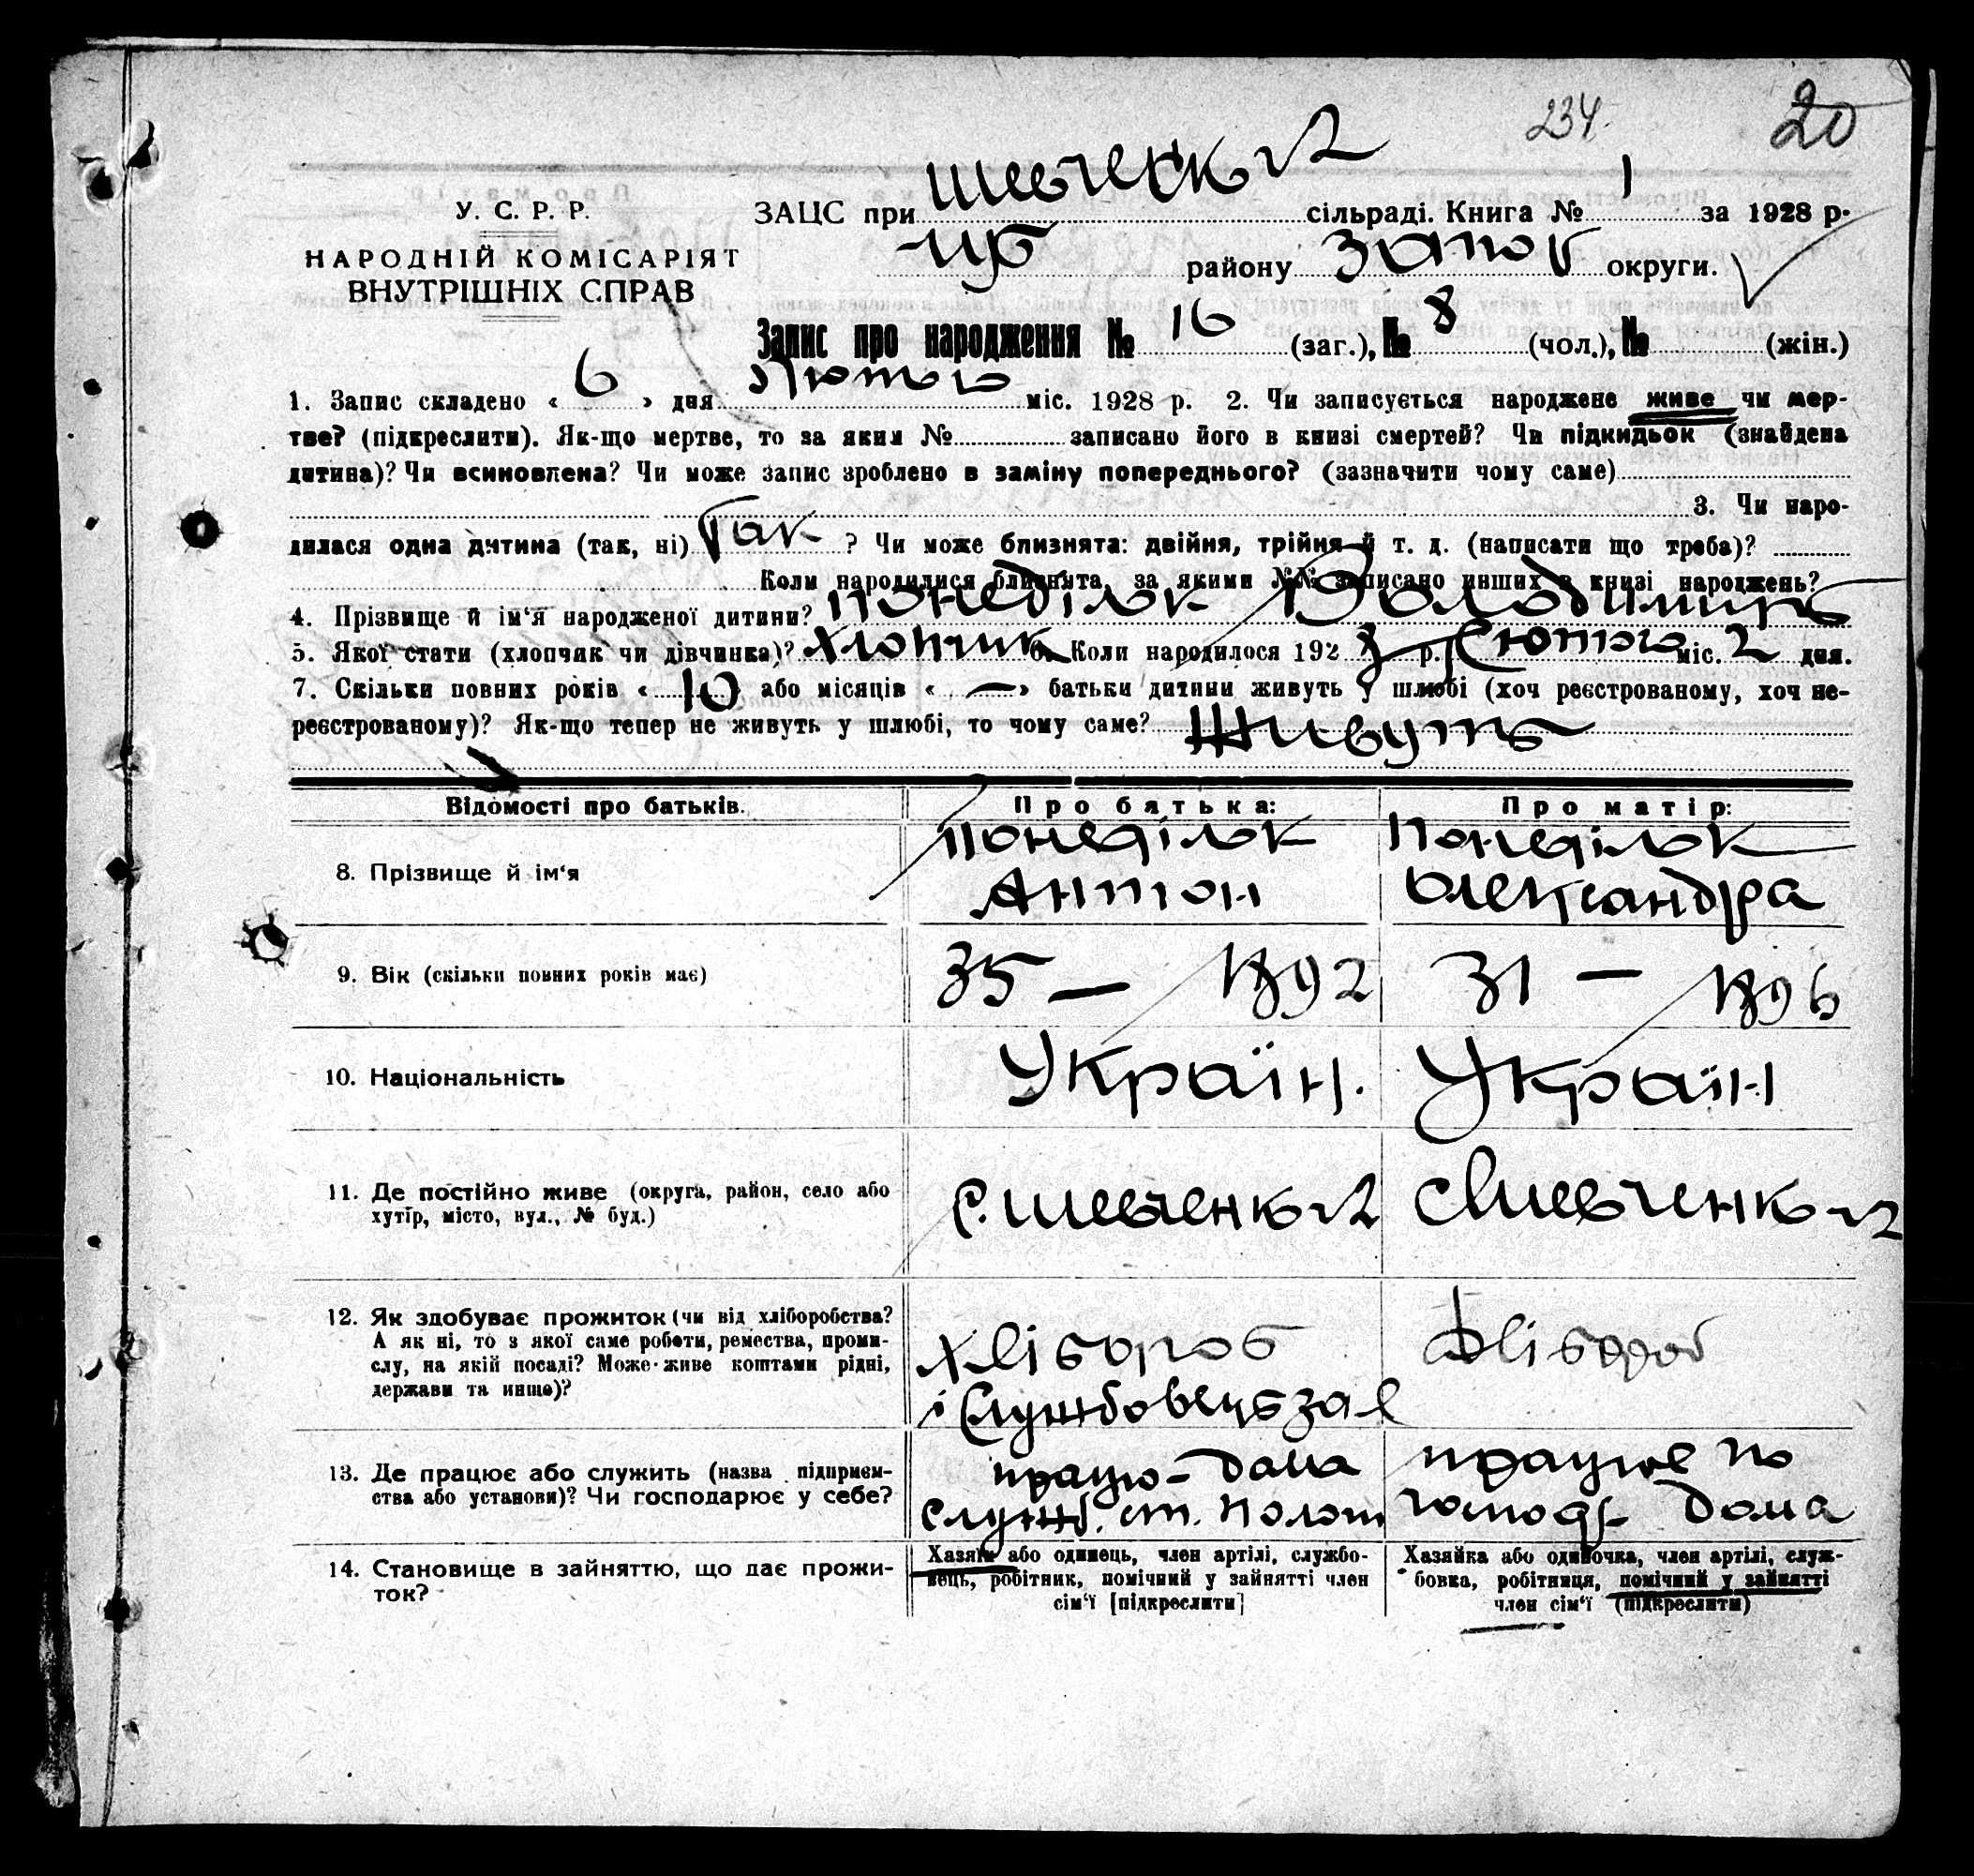 234 20
У. С. Р. Р.
НАРОДНІЙ КОМІСАРІЯТ
ВНУТРІШНІХ СПРАВ
ЗАЦС при Шевченк № 2 сільраді. Книга № 1 за 1928 р.
району Запор округи.
Запис про народження № 16 (заг.), № 8 (чол.), № (жін.)
1. Запис складено « 6 » дня Лютого міс. 1928 р. 2. Чи записується народжене живе чи мер-
тве? (підкреслити). Як-що мертве, то за яким № записано його в книзі смертей? Чи підкидьок (знайдена
дитина)? Чи всиновлена? Чи може запис зроблено в заміну попереднього? (зазначити чому саме)
3. Чи наро-
дилася одна дитина (так, ні) Так ? Чи може близнята: двійня, трійня й т. д. (написати що треба)?
Коли народилися близнята, за якими №№ записано инших в книзі народжень?
4. Прізвище й ім‘я народженої дитини? Понеділок Володимирь
5. Якої стати (хлопчик чи дівчинка)? Хлопчик 6. Коли народилося 1928 р. Лютого міс. 2 дня.
7. Скільки повних років « 10 » або місяців « — » батьки дитини живуть у шлюбі (хоч реєстрованому, хоч не-
реєстрованому)? Як-що тепер не живуть у шлюбі, то чому саме? Живуть
Відомості про батьків. Про батька: Про матір:
8. Прізвище й ім‘я
Понеділок
Антон
Понеділок
Олександра
9. Вік (скільки повних років має) 35 — 1892 31 — 1896
10. Національність Україн. Україн
11. Де постійно живе (округа, район, село або
хутір, місто, вул., № буд.)
с. Шевченк № 2 с. Шевченк № 2
12. Як здобуває прожиток (чи від хліборобства?
А як ні, то з якої саме роботи, ремества, проми-
слу, на якій посаді? Може живе коштами рідні,
держави та инше)?
Хлібороб
і Службовець зал
Хлібороб
13. Де працює або служить (назва підприєм-
ства або установи)? Чи господарює у себе?
працю- дома
служб. ст. Полог
працює по
господ. дома
14. Становище в зайняттю, що дає прожи-
ток?
Хазяїн або одинець, член артілі, службо-
вець, робітник, помічний у зайнятті член
сім‘ї [підкреслити]
Хазяйка або одиночка, член артілі, служ-
бовка, робітниця, помічний у зайнятті
член сім‘ї (підкреслити)